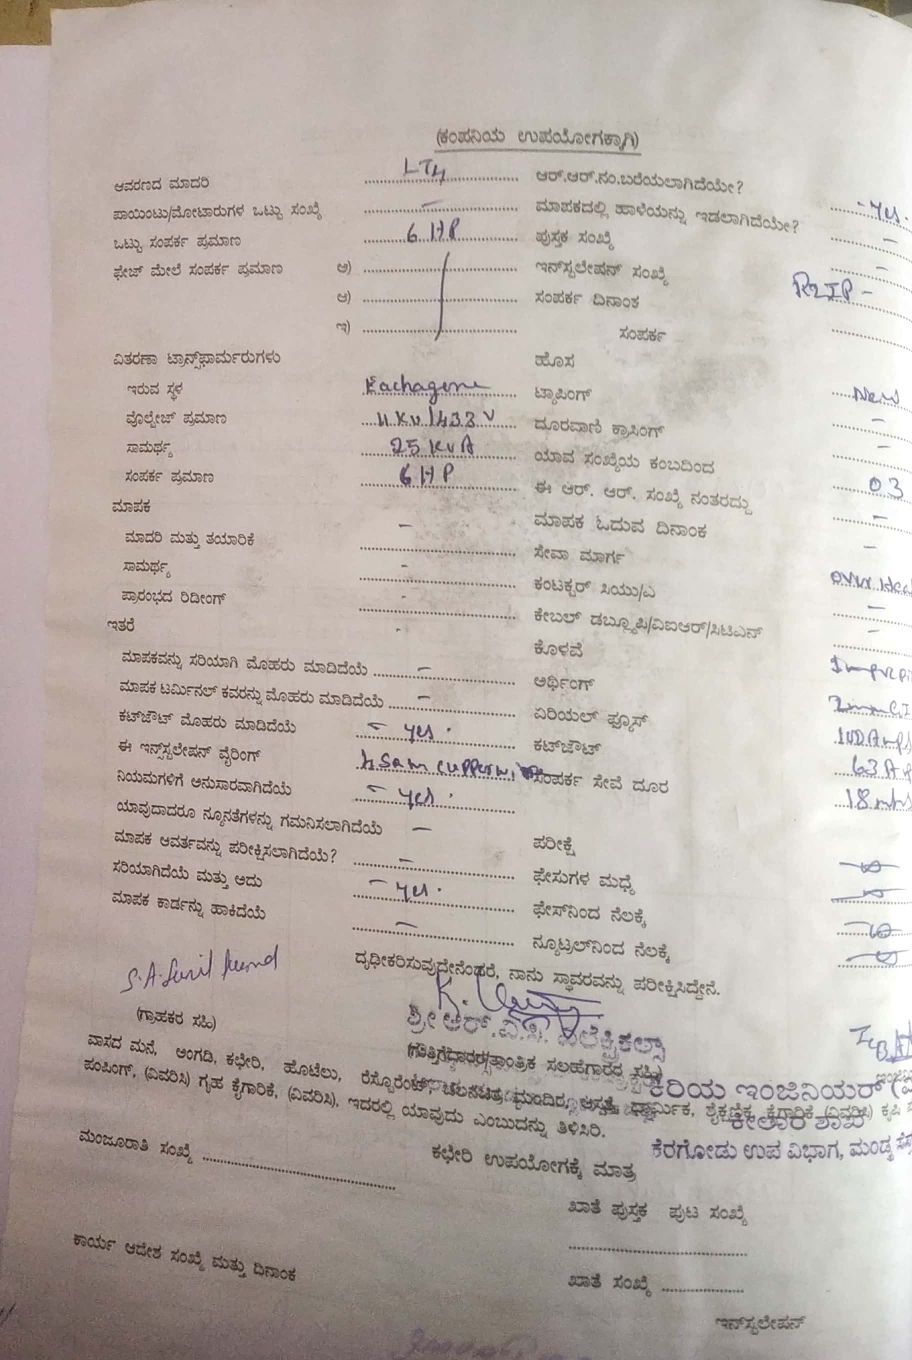 (ಕಂಪನಿಯ ಉಪಯೋಗಕ್ಕಾಗಿ)
ಆವರಣದ ಮಾದರಿ LT4 ಆರ್.ಆರ್.ನಂ.ಬರೆಯಲಾಗಿದೆಯೇ? - yes.
ಪಾಯಿಂಟು/ಮೋಟಾರುಗಳ ಒಟ್ಟು ಸಂಖ್ಯೆ – ಮಾಪಕದಲ್ಲಿ ಹಾಳೆಯನ್ನು ಇಡಲಾಗಿದೆಯೇ? –
ಒಟ್ಟು ಸಂಪರ್ಕ ಪ್ರಮಾಣ 6 HP ಪುಸ್ತಕ ಸಂಖ್ಯೆ –
ಫೇಜ್ ಮೇಲೆ ಸಂಪರ್ಕ ಪ್ರಮಾಣ ಅ) ಇನ್‌ಸ್ಟಲೇಷನ್ ಸಂಖ್ಯೆ
ಆ) ಸಂಪರ್ಕ ದಿನಾಂಕ
ಇ) ಸಂಪರ್ಕ
ವಿತರಣಾ ಟ್ರಾನ್ಸ್‌ಫಾರ್ಮರುಗಳು ಹೊಸ New
ಇರುವ ಸ್ಥಳ ಟ್ಯಾಪಿಂಗ್ –
ವೊಲ್ಟೇಜ್ ಪ್ರಮಾಣ 11 KV/433 V ದೂರವಾಣಿ ಕ್ರಾಸಿಂಗ್ –
ಸಾಮರ್ಥ್ಯ 25 KVA ಯಾವ ಸಂಖ್ಯೆಯ ಕಂಬದಿಂದ 03
ಸಂಪರ್ಕ ಪ್ರಮಾಣ 6 HP ಈ ಆರ್. ಆರ್. ಸಂಖ್ಯೆ ನಂತರದ್ದು –
ಮಾಪಕ ಮಾಪಕ ಓದುವ ದಿನಾಂಕ –
ಮಾದರಿ ಮತ್ತು ತಯಾರಿಕೆ – ಸೇವಾ ಮಾರ್ಗ
ಸಾಮರ್ಥ್ಯ - ಕಂಟಕ್ಟರ್ ಸಿಯು/ಎ –
ಪ್ರಾರಂಭದ ರಿಡೀಂಗ್ - ಕೇಬಲ್ ಡಬ್ಲ್ಯೂಪಿ/ವಿಐಆರ್/ಸಿಟಿಎನ್ –
ಇತರೆ - ಕೊಳವೆ
ಮಾಪಕವನ್ನು ಸರಿಯಾಗಿ ಮೊಹರು ಮಾಡಿದೆಯೆ – ಅರ್ಥಿಂಗ್
ಮಾಪಕ ಟರ್ಮಿನಲ್ ಕವರನ್ನು ಮೊಹರು ಮಾಡಿದೆಯೆ – ಏರಿಯಲ್ ಫ್ಯೂಸ್
ಕಟ್‌ಜೌಟ್ ಮೊಹರು ಮಾಡಿದೆಯೆ – yes. ಕಟ್‌ಜೌಟ್ 63 A
ಈ ಇನ್ಸ್‌ಸ್ಟಲೇಷನ್ ವೈರಿಂಗ್ ಸಂಪರ್ಕ ಸೇವೆ ದೂರ 18 mts
ನಿಯಮಗಳಿಗೆ ಅನುಸಾರವಾಗಿದೆಯೆ – yes.
ಯಾವುದಾದರೂ ನ್ಯೂನತೆಗಳನ್ನು ಗಮನಿಸಲಾಗಿದೆಯೆ – ಪರೀಕ್ಷೆ
ಮಾಪಕ ಆವರ್ತವನ್ನು ಪರೀಕ್ಷಿಸಲಾಗಿದೆಯೆ? – ಫೇಸುಗಳ ಮಧ್ಯೆ
ಸರಿಯಾಗಿದೆಯೆ ಮತ್ತು ಅದು – yes. ಫೇಸ್‌ನಿಂದ ನೆಲಕ್ಕೆ
ಮಾಪಕ ಕಾರ್ಡನ್ನು ಹಾಕಿದೆಯೆ – ನ್ಯೂಟ್ರಲ್‌ನಿಂದ ನೆಲಕ್ಕೆ
ದೃಢೀಕರಿಸುವುದೇನೆಂದರೆ, ನಾನು ಸ್ಥಾವರವನ್ನು ಪರೀಕ್ಷಿಸಿದ್ದೇನೆ.
(ಗ್ರಾಹಕರ ಸಹಿ)
(ಗುತ್ತಿಗೆದಾರರ/ತಾಂತ್ರಿಕ ಸಲಹೆಗಾರರ ಸಹಿ)
ಕಿರಿಯ ಇಂಜಿನಿಯರ್
ವಾಸದ ಮನೆ, ಅಂಗಡಿ, ಕಛೇರಿ, ಹೊಟೆಲು, ರೆಸ್ಟೊರೆಂಟ್, ಚಲನಚಿತ್ರ ಮಂದಿರ, ಆಸ್ಪತ್ರೆ, ಧಾರ್ಮಿಕ, ಶೈಕ್ಷಣಿಕ, ಕೈಗಾರಿಕೆ (ವಿವರಿಸಿ) ಕೃಷಿ
ಪಂಪಿಂಗ್, (ವಿವರಿಸಿ) ಗೃಹ ಕೈಗಾರಿಕೆ, (ವಿವರಿಸಿ), ಇದರಲ್ಲಿ ಯಾವುದು ಎಂಬುದನ್ನು ತಿಳಿಸಿರಿ.
ಕೆರಗೋಡು ಉಪ ವಿಭಾಗ, ಮಂಡ್ಯ
ಮಂಜೂರಾತಿ ಸಂಖ್ಯೆ ಕಛೇರಿ ಉಪಯೋಗಕ್ಕೆ ಮಾತ್ರ
ಖಾತೆ ಪುಸ್ತಕ ಪುಟ ಸಂಖ್ಯೆ
ಕಾರ್ಯ ಆದೇಶ ಸಂಖ್ಯೆ ಮತ್ತು ದಿನಾಂಕ ಖಾತೆ ಸಂಖ್ಯೆ
ಇನ್‌ಸ್ಟಲೇಷನ್